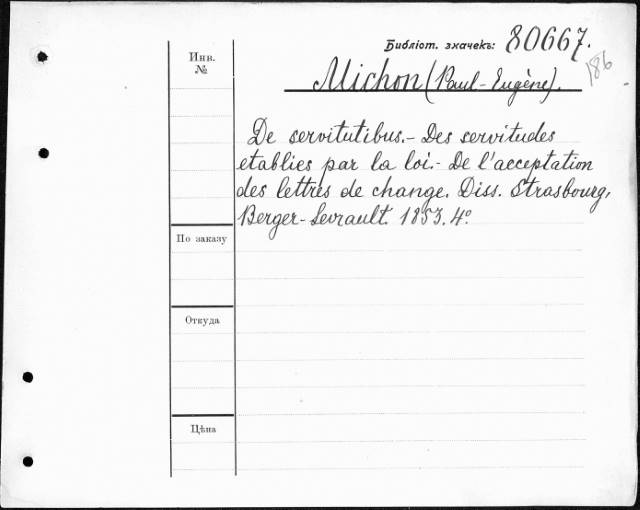 Библіот. значекъ: 80667.
186
Инв.
№
Michon (Paul-Eugène).
De servitutibus.- Des servitudes
etablies par la loi.- De l'acceptation
des lettres de change. Diss. Strasbourg,
Berger-Levrault. 1853. 4º
По заказу
Откуда
Цѣна